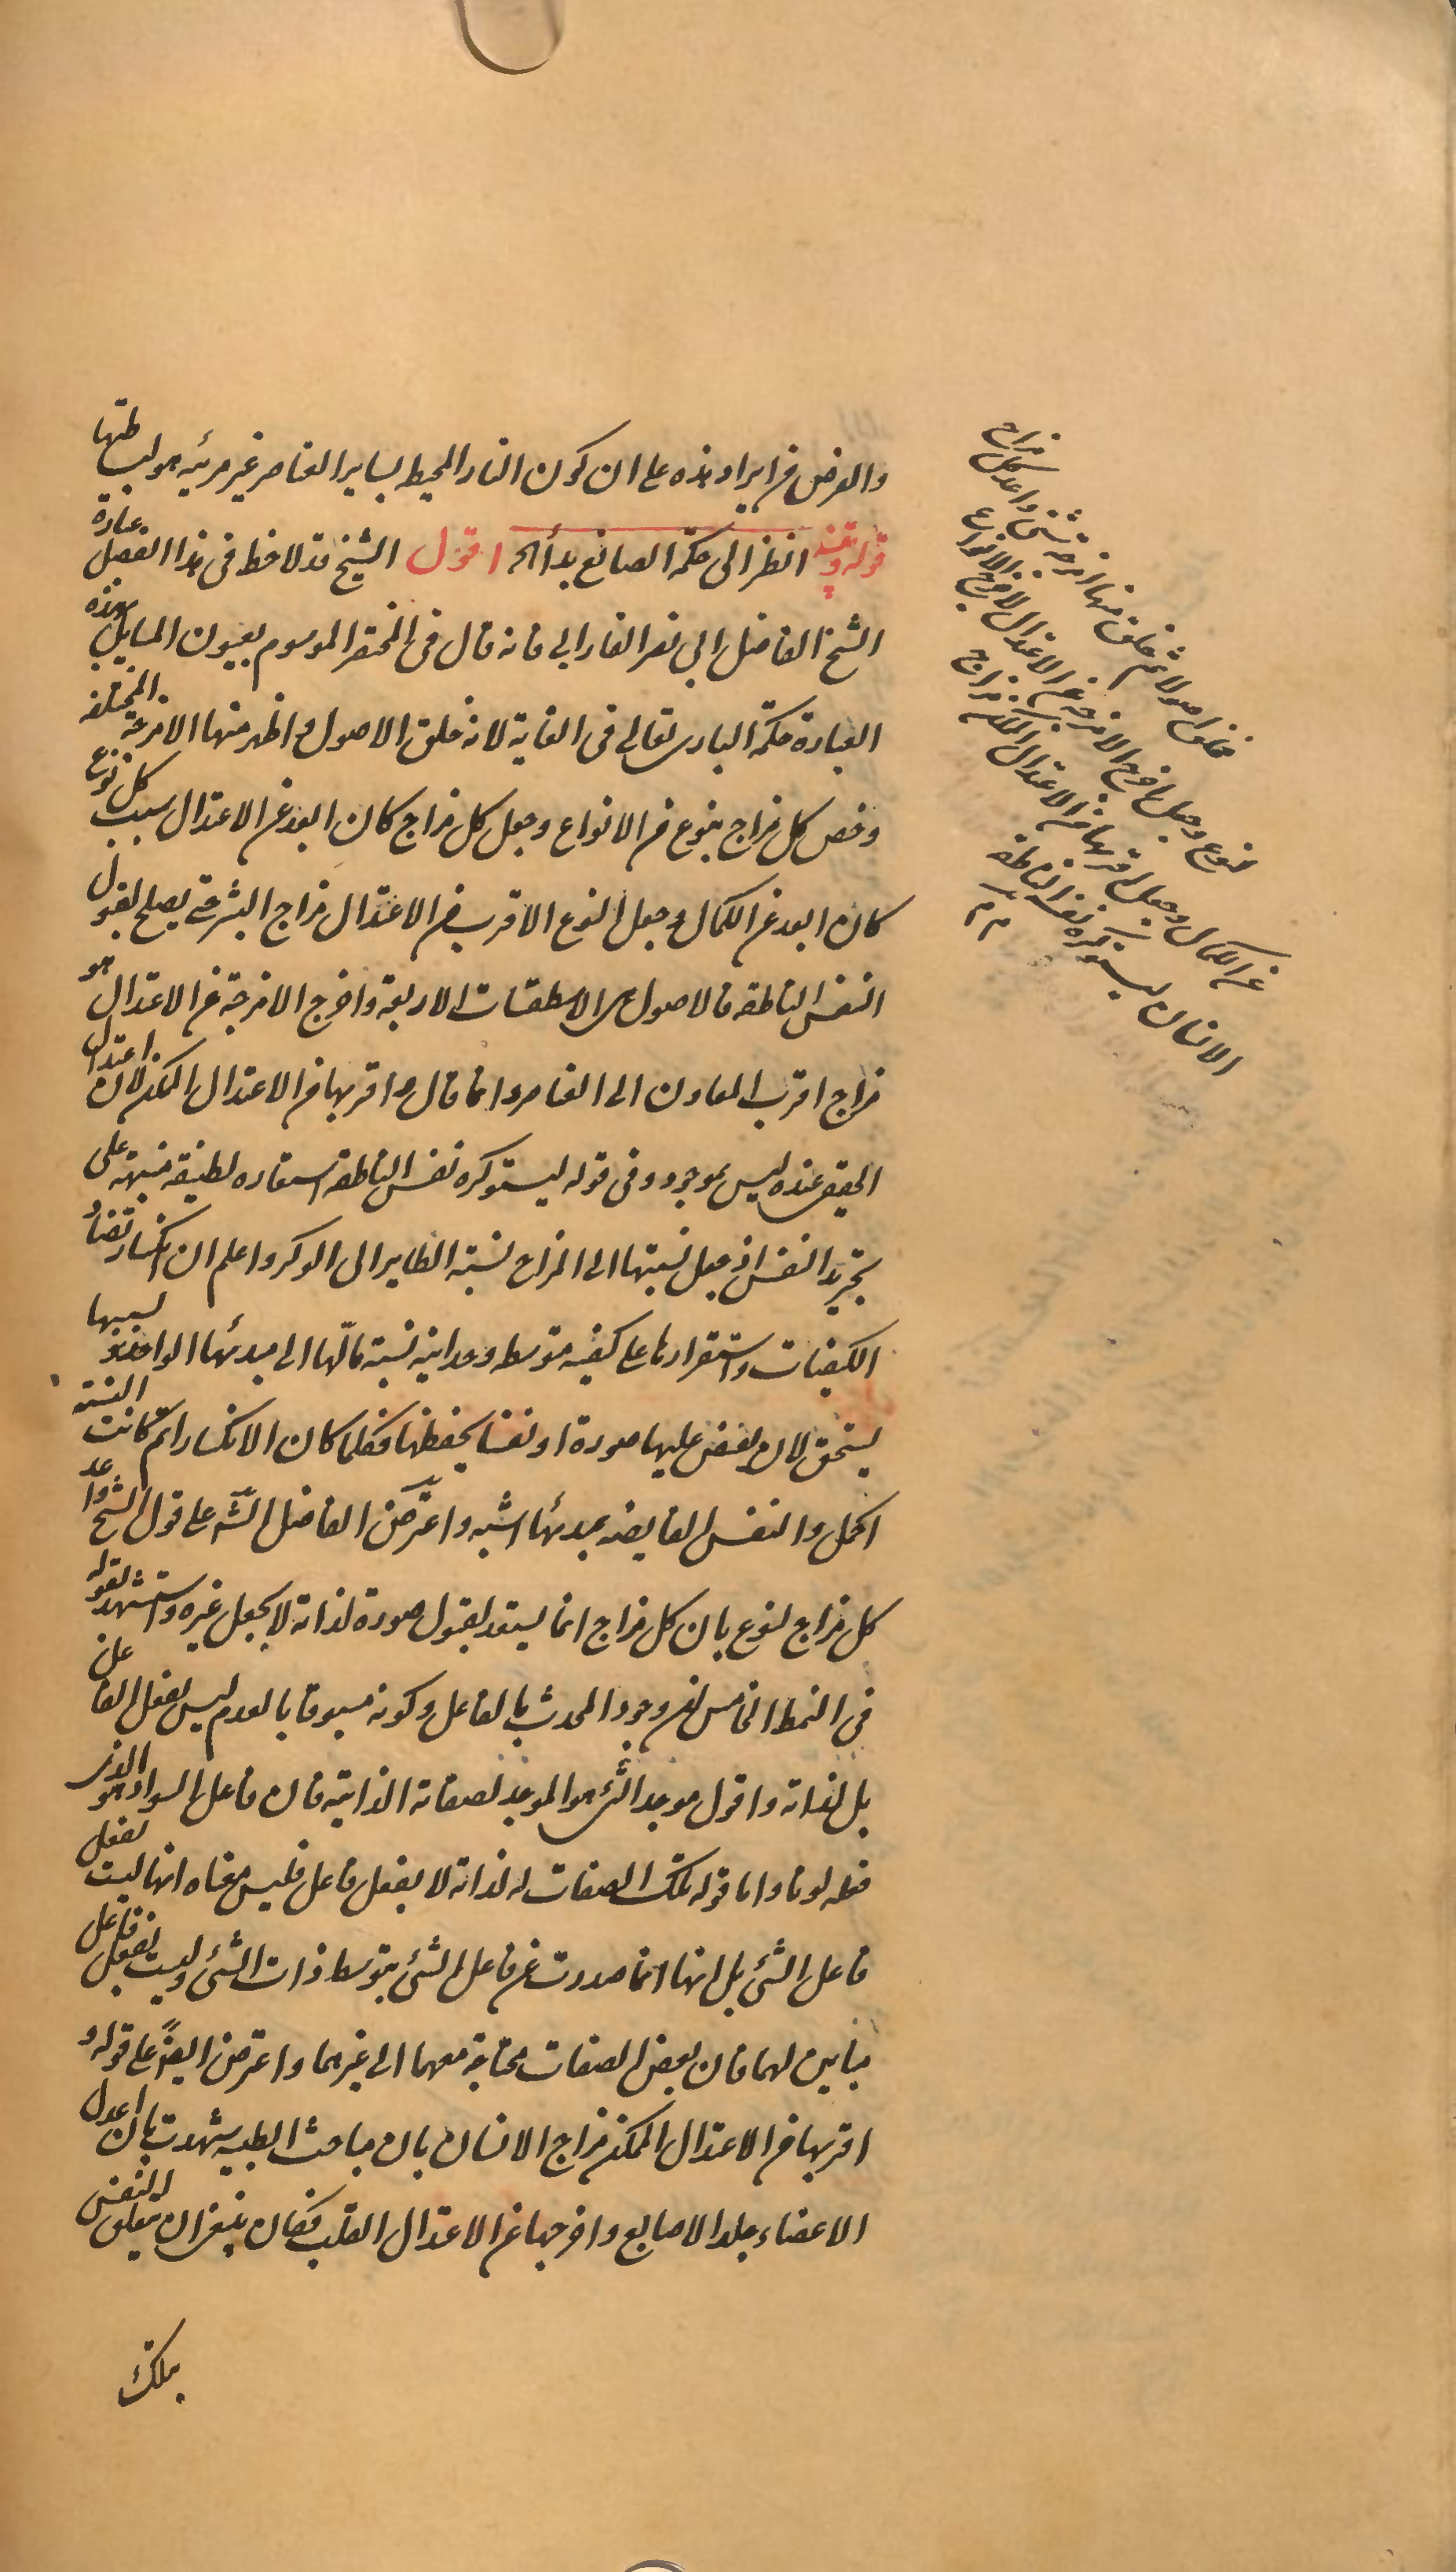 والغرض من ايراد هذه على ان كون النار المحيط بساير العناصر غير مرئيه هو لبساطتها
قوله وتنبيه انظر الى حكمة الصانع بدأ الخ اقول الشيخ قد لاحظ فى هذا الفصل عبارة
الشيخ الفاضل ابى نصر الفارابى فانه قال فى المختصر الموسوم بعيون المسايل بهذه
العبارة حكمة البارى تعالى فى الغاية لانه خلق الاصول واظهر منها الامزجة المختلفة
وخص كل مزاج بنوع من الانواع وجعل كل مزاج كان ابعد عن الاعتدال سبب كل نوع
كان ابعد عن الكمال وجعل النوع الاقرب من الاعتدال مزاج البشر حتى يصلح لقبول
النفس الناطقه فالاصول هى الاسطقسات الاربعة واخرج الامزجة عن الاعتدال هو
مزاج اقرب المعادن الى العناصر وانما قال واقربها من الاعتدال الممكن لان اعتدال
الحقيقى عنده ليس بموجود وفى قوله ليستوكره نفس الناطقة استعاره لطيفة منبهة على
تجريد النفس اذ جعل نسبتها الى المزاج نسبة الطاير الى الوكر واعلم ان انكسار تضاد
الكيفيات واستقرارها على كيفيه متوسطه وحدانيه نسبة مالها الى مبدئها الواحد وبسببها
يستحق لان يفيض عليها صورة او نفسا يحفظها فكلما كان الانكسار اتم كانت النسبة
اكمل والنفس الفايضه بمبدئها اشبه واعترض الفاضل الش على قول الشيخ واعد
كل مزاج لنوع بان كل مزاج انما يستعد لقبول صورة لذاته لا بجعل غيره واستشهد بقوله
فى النمط الخامس ان وجود المحدث بالفاعل وكونه مسبوقا بالعدم ليس بفعل الفاعل
بل لذاته واقول موجد الشئ هو الموجد لصفاته الذاتية فان فاعل السواد هو الذى
فعله لونا واما قوله تلك الصفات له لذاته لا بفعل فاعل فليس معناه انها ليست بفعل
فاعل الشئ بل انها انما صدرت عن فاعل الشئ بتوسط ذات الشئ وليست بفعل فاعل
مباين لهما فان بعض الصفات محتاجة معهما الى غيرهما واعترض ايضاً على قوله و
اقربها من الاعتدال الممكن مزاج الانسان بان مباحث الطبيه شهدت بان اعدل
الاعضاء جلد الاصابع واخرجها عن الاعتدال القلب فكان ينبغى ان يتعلق النفس
بملك
فخلق اصولا ثم خلق منها امزجة شتى واعد كل مزاج
لنوع وجعل اخرج الامزجة عن الاعتدال لاخرج الانواع
عن الكمال وجعل اقربها من الاعتدال الممكن مزاج
الانسان ليستوكره نفسه الناطقه